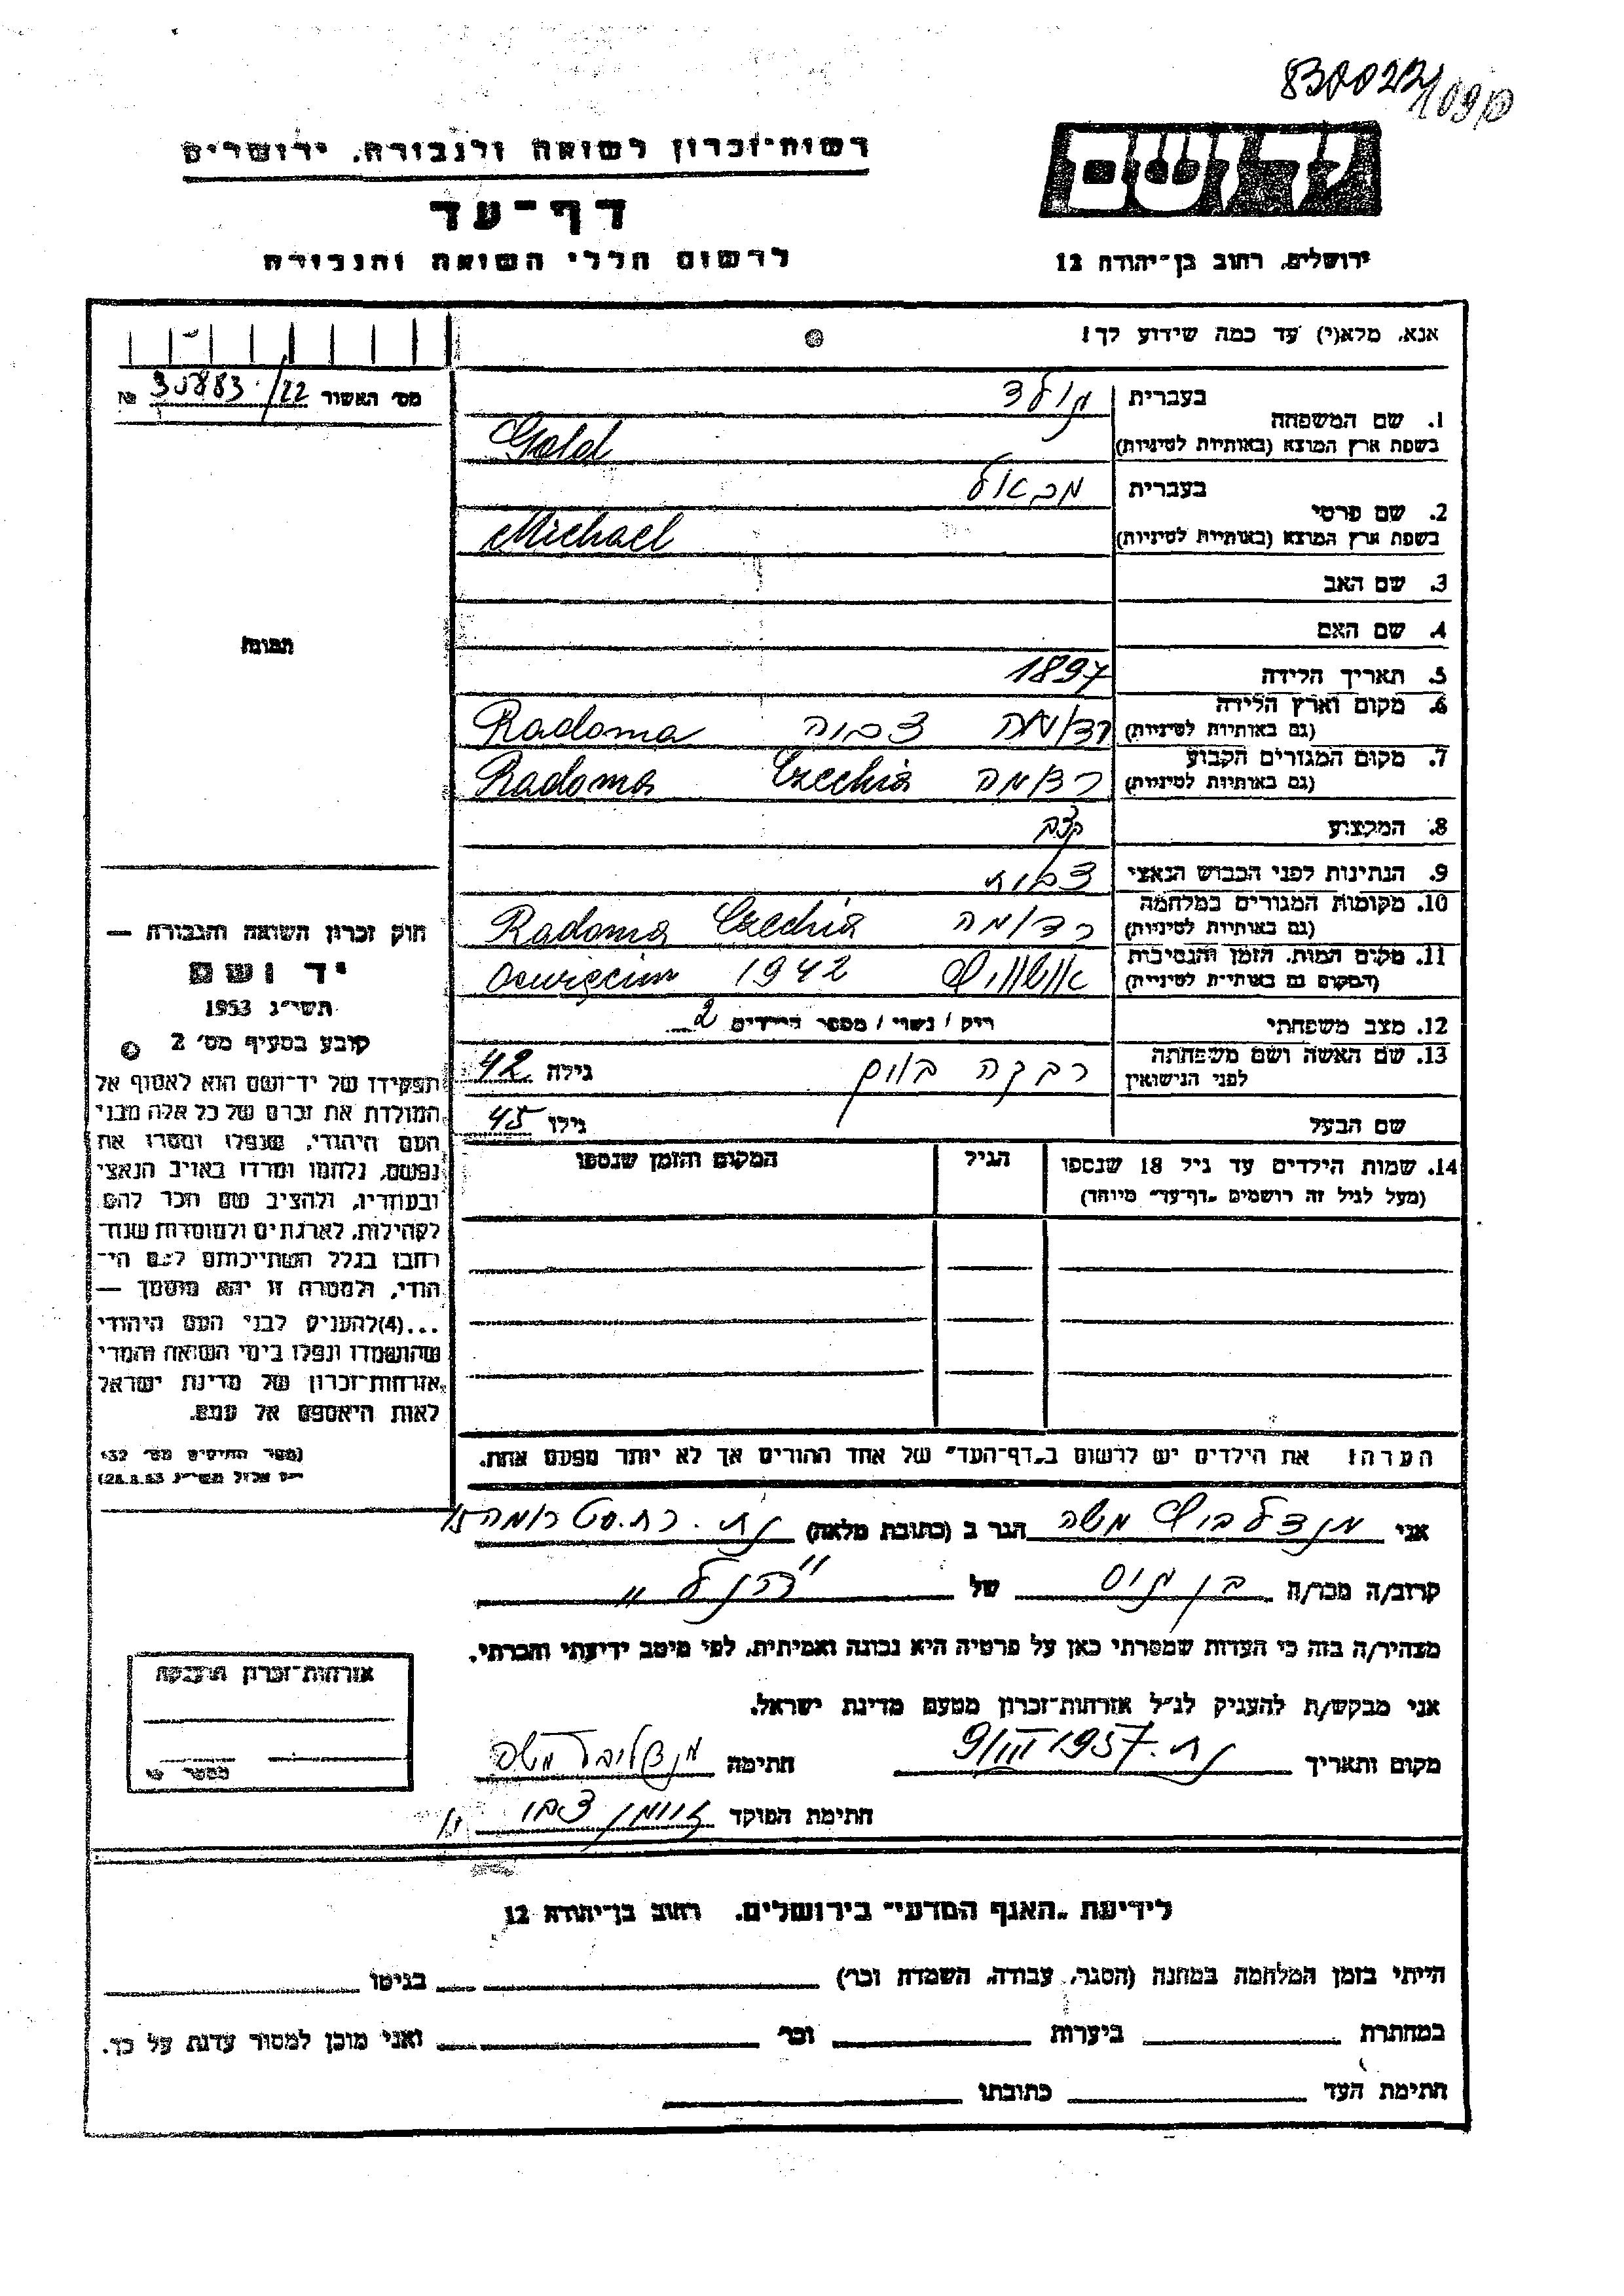 רשות־זכרון לשואה ולגבורה, ירושלים
דף־עד
לרשום חללי השואה והגבורה
יד ושם
ירושלים, רחוב בן־יהודה 12
אנא, מלא(י) עד כמה שידוע לך!
מס׳ האשור 30883/22 №
1. שם המשפחה בעברית גולד
בשפת ארץ המוצא (באותיות לטיניות) Gold
2. שם פרטי בעברית מיכאל
בשפת ארץ המוצא (באותיות לטיניות) Michael
3. שם האב
4. שם האם
5. תאריך הלידה 1897
6. מקום וארץ הלידה רדומה צ׳כיה Radoma
(גם באותיות לטיניות)
7. מקום המגורים הקבוע רדומה Czechia Radoma
(גם באותיות לטיניות)
8. המקצוע קצב
9. הנתינות לפני הכבוש הנאצי צ׳כית
10. מקומות המגורים במלחמה רדומה Czechia Radoma
(גם באותיות לטיניות)
11. מקום המות, הזמן והנסיבות אושוויץ 1942 Oswięcim
(המקום גם באותיות לטיניות)
12. מצב משפחתי רווק / נשוי / מספר הילדים 2
13. שם האשה ושם משפחתה רבקה בוים גילה 42
לפני הנישואין
שם הבעל גילו 45
14. שמות הילדים עד גיל 18 שנספו הגיל המקום והזמן שנספו
(מעל לגיל זה רושמים „דף־עד” מיוחד)
הערה: את הילדים יש לרשום ב„דף־העד” של אחד ההורים אך לא יותר מפעם אחת.
תמונה
חוק זכרון השואה והגבורה —
יד ושם
תשי״ג 1953
קובע בסעיף מס׳ 2
תפקידו של יד־ושם הוא לאסוף אל
המולדת את זכרם של כל אלה מבני
העם היהודי, שנפלו ומסרו את
נפשם, נלחמו ומרדו באויב הנאצי
ובעוזריו, ולהציב שם וזכר להם
לקהילות, לארגונים ולמוסדות שנח־
רבו בגלל השתייכותם לעם הי־
הודי, ולמטרה זו יהא מוסמך —
...(4) להעניק לבני העם היהודי
שהושמדו ונפלו בימי השואה והמרי
אזרחות־זכרון של מדינת ישראל
לאות היאספם אל עמם.
(ספר החוקים מס׳ 132
י״ז אלול תשי״ג 28.8.53)
אני מנדלבוים משה הגר ב (כתובת מלאה)
קרוב/ה מכר/ה בן גיס של הנ״ל
מצהיר/ה בזה כי העדות שמסרתי כאן על פרטיה היא נכונה ואמיתית, לפי מיטב ידיעתי והכרתי.
אני מבקש/ת להעניק לנ״ל אזרחות־זכרון מטעם מדינת ישראל.
מקום ותאריך 9/III 1957 חתימה
חתימת הפוקד
אזרחות־זכרון הוענקה
מספר
לידיעת „האגף המדעי” בירושלים, רחוב בן־יהודה 12
הייתי בזמן המלחמה במחנה (הסגר, עבודה, השמדה וכו׳) בגיטו
במחתרת ביערות וכו׳ ואני מוכן למסור עדות על כך.
חתימת העד כתובתו